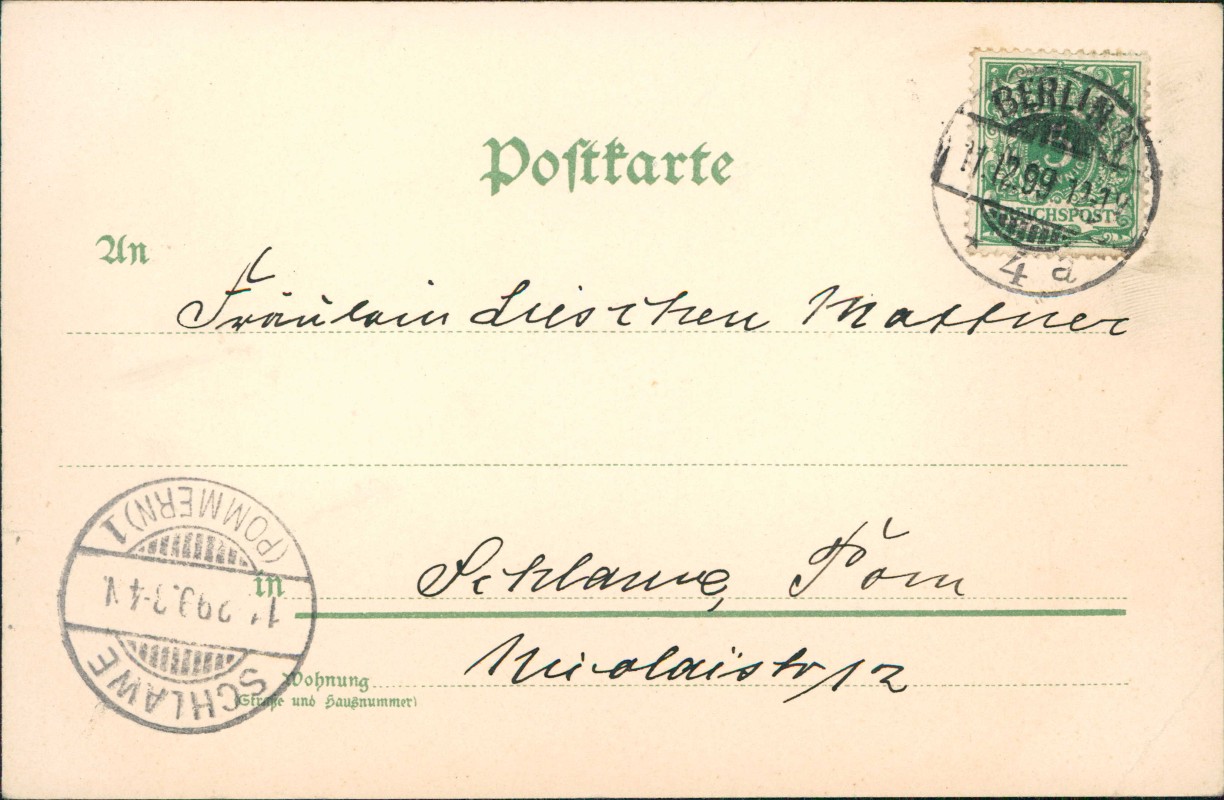 Postkarte
BERLIN
11.12.99 11-12
REICHSPOST
* 4 a
An
Fräulein Lieschen Mattner
in Schlawe, Pom
Wohnung Nicolaistr 12
(Straße und Hausnummer)
SCHLAWE
(POMMERN) 1